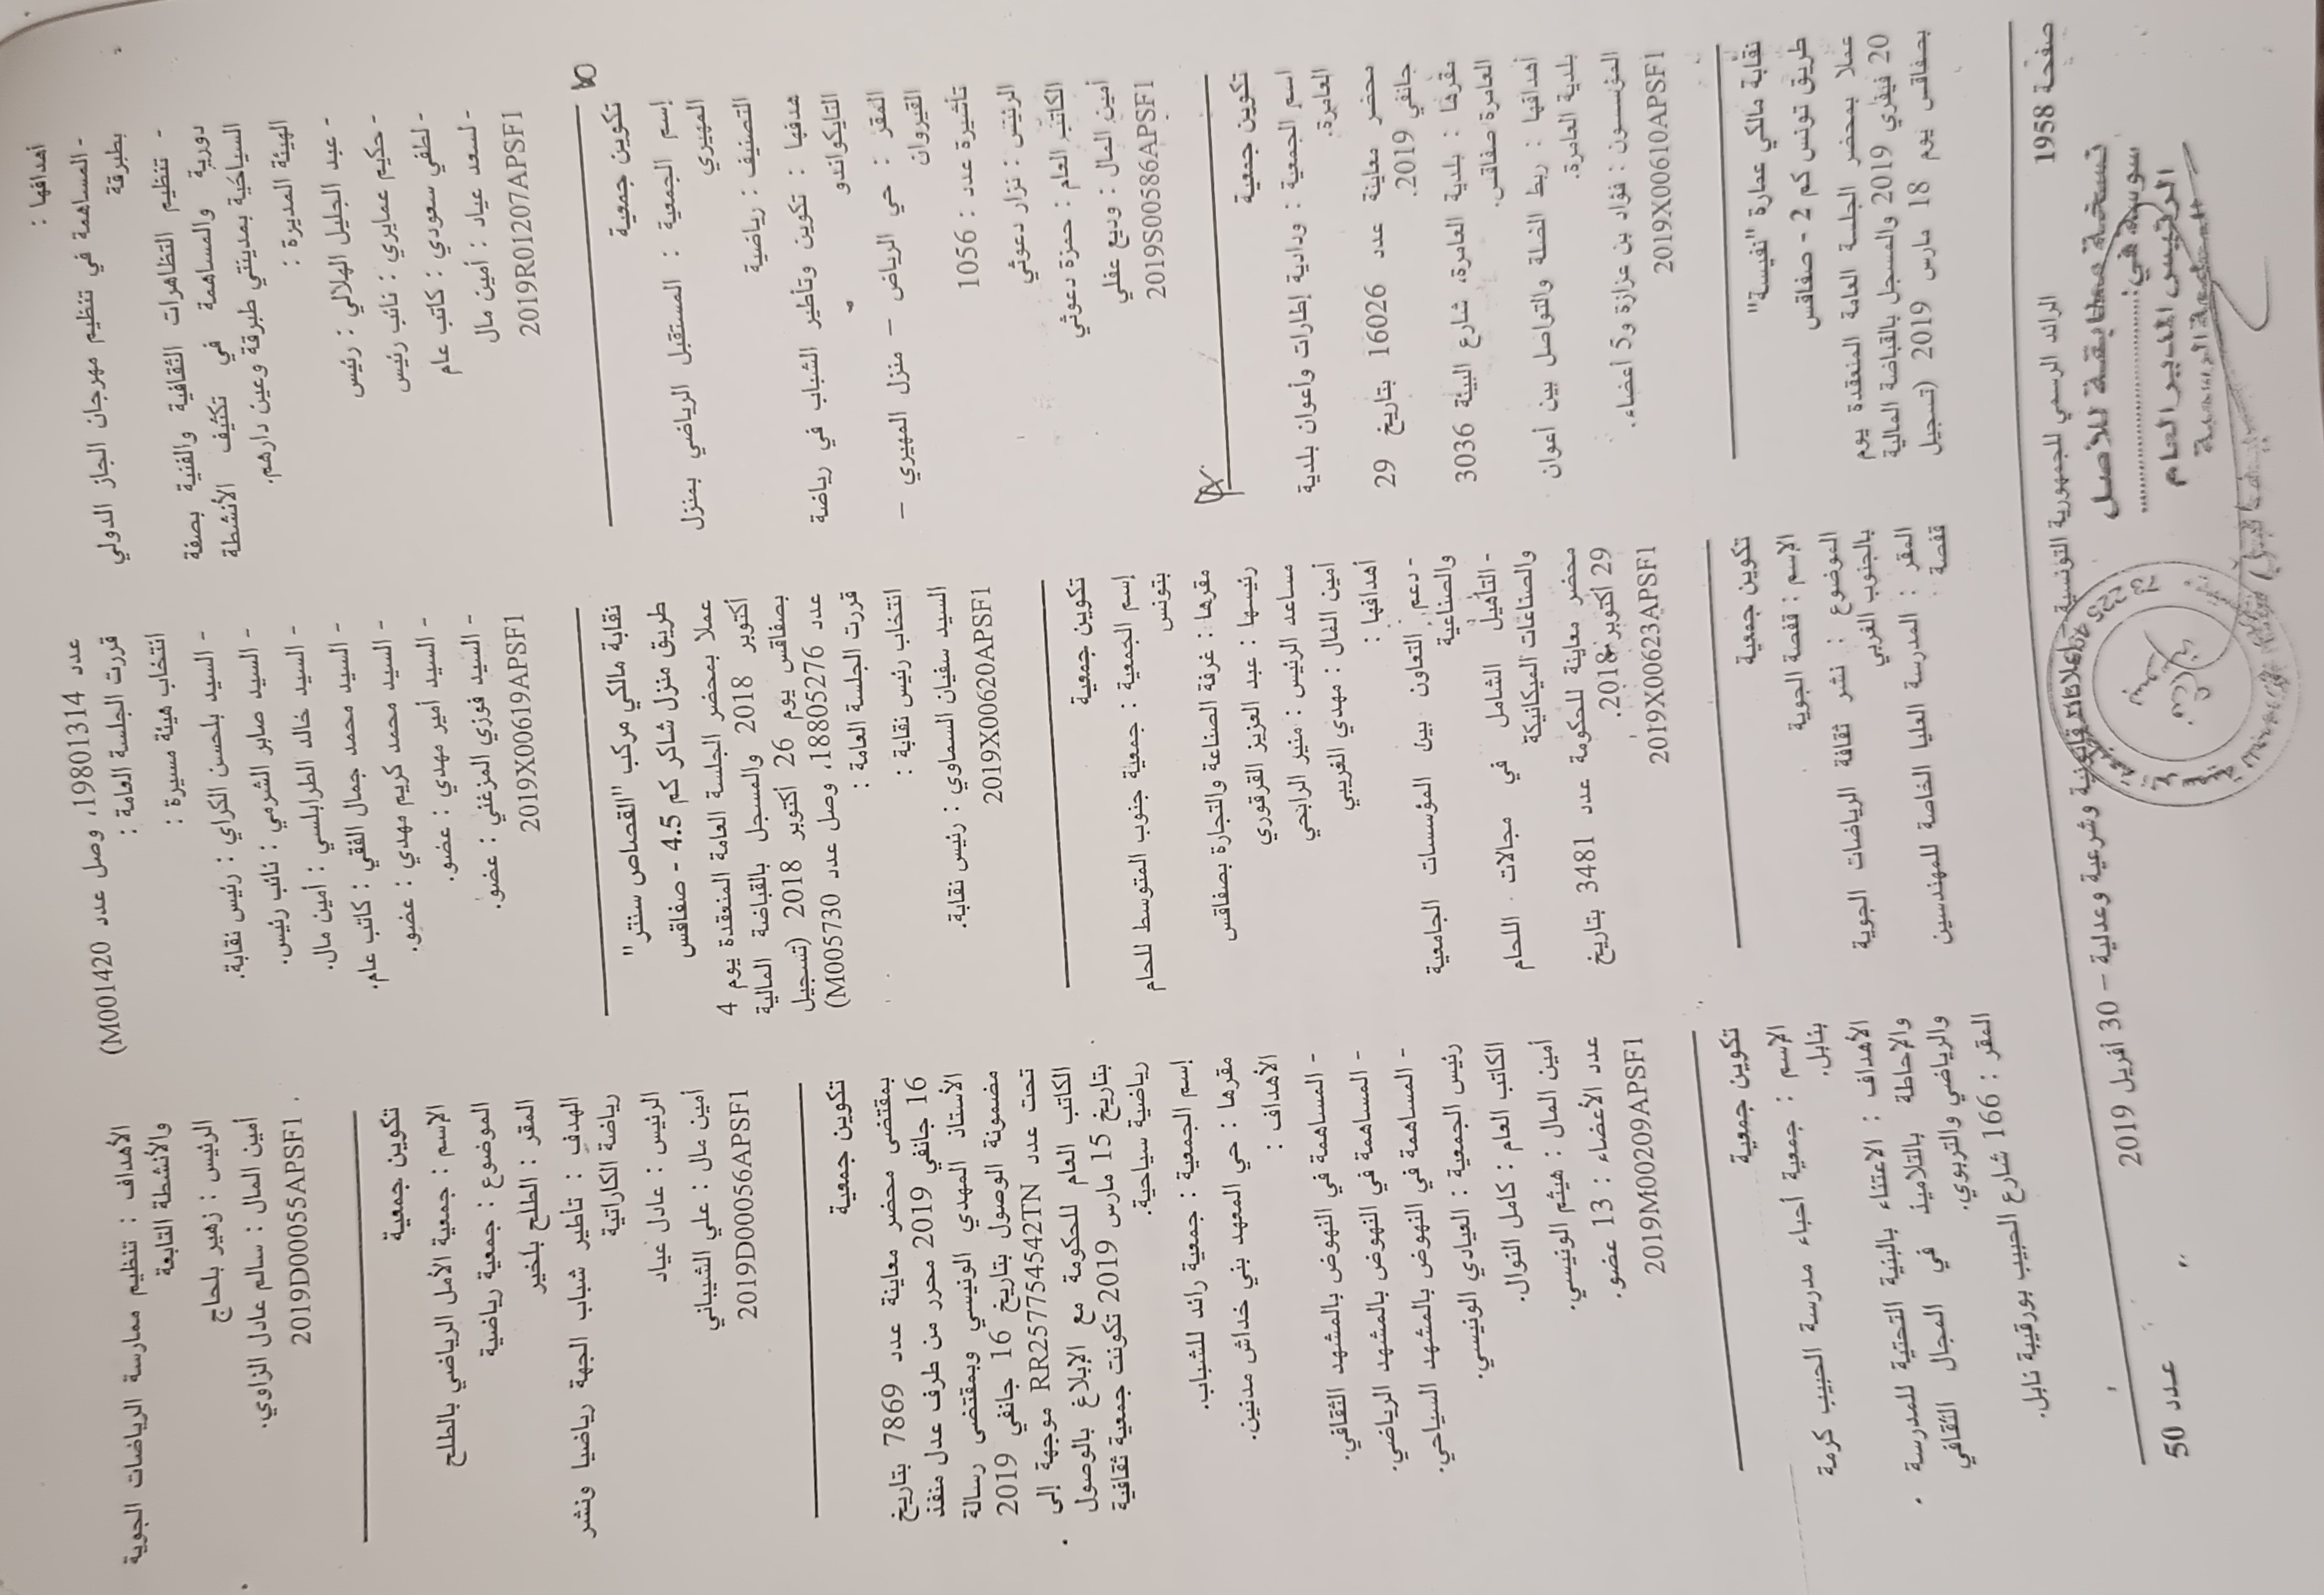 أهدافها :
-المساهمة في تنظيم مهرجان الجاز الدولي
بطبرقة
- تنظيم التظاهرات الثقافية والفنية بصفة
دورية والمساهمة في تكثيف الأنشطة
السياحية بمدينتي طبرقة وعين دراهم.
الهيئة المديرة :
- عبد الجليل الهلالي : رئيس
- حكيم عمايري : نائب رئيس
- لطفي سعودي : كاتب عام
- لسعد عياد : أمين مال
2019R01207APSF1
تكوين جمعية
إسم الجمعية : المستقبل الرياضي بمنزل
المهيري
التصنيف : رياضية
هدفها : تكوين وتأطير الشباب في رياضة
التايكواندو
المقر : حي الرياض – منزل المهيري –
القيروان
تأشيرة عدد : 1056
الرئيس : نزار دعوثي
الكاتب العام : حمزة دعوثي
أمين المال : وديع عقلي
2019S00586APSF1
تكوين جمعية
اسم الجمعية : ودادية إطارات وأعوان بلدية
العامرة.
محضر معاينة عدد 16026 بتاريخ 29
جانفي 2019.
مقرها : بلدية العامرة، شارع البيئة 3036
العامرة صفاقس.
أهدافها : ربط الصلة والتواصل بين أعوان
بلدية العامرة.
المؤسسون : فؤاد بن عزارة و5 أعضاء.
2019X00610APSF1
نقابة مالكي عمارة "نفيسة"
طريق تونس كم 2 - صفاقس
عملا بمحضر الجلسة العامة المنعقدة يوم
20 فيفري 2019 والمسجل بالقباضة المالية
بصفاقس يوم 18 مارس 2019 (تسجيل
عدد 19801314، وصل عدد M001420)
قررت الجلسة العامة :
انتخاب هيئة مسيرة :
- السيد بلحسن الكراي : رئيس نقابة.
- السيد صابر الشرمي : نائب رئيس.
- السيد خالد الطرابلسي : أمين مال.
- السيد محمد جمال الفقي : كاتب عام.
- السيد محمد كريم مهدي : عضو.
- السيد أمير مهدي : عضو.
- السيد فوزي المزغني : عضو.
2019X00619APSF1
نقابة مالكي مركب "القصاص سنتر"
طريق منزل شاكر كم 4.5 - صفاقس
عملا بمحضر الجلسة العامة المنعقدة يوم 4
أكتوبر 2018 والمسجل بالقباضة المالية
بصفاقس يوم 26 أكتوبر 2018 (تسجيل
عدد 18805276، وصل عدد M005730)
قررت الجلسة العامة :
انتخاب رئيس نقابة :
السيد سفيان السماوي : رئيس نقابة.
2019X00620APSF1
تكوين جمعية
إسم الجمعية : جمعية جنوب المتوسط للحام
بتونس
مقرها : غرفة الصناعة والتجارة بصفاقس
رئيسها : عبد العزيز القرقوري
مساعد الرئيس : منير الرابحي
أمين المال : مهدي الغريبي
أهدافها :
- دعم التعاون بين المؤسسات الجامعية
والصناعية
- التأهيل الشامل في مجالات اللحام
والصناعات الميكانيكية
محضر معاينة للحكومة عدد 3481 بتاريخ
29 أكتوبر 2018.
2019X00623APSF1
تكوين جمعية
الإسم : قفصة الجوية
الموضوع : نشر ثقافة الرياضات الجوية
بالجنوب الغربي
المقر : المدرسة العليا الخاصة للمهندسين
قفصة
الأهداف : تنظيم ممارسة الرياضات الجوية
والأنشطة التابعة
الرئيس : زهير بلحاج
أمين المال : سالم عادل الزاوي.
2019D00055APSF1
تكوين جمعية
الإسم : جمعية الأمل الرياضي بالطلح
الموضوع : جمعية رياضية
المقر : الطلح بلخير
الهدف : تأطير شباب الجهة رياضيا ونشر
رياضة الكاراتية
الرئيس : عادل عياد
أمين مال : علي الشيباني
2019D00056APSF1
تكوين جمعية
بمقتضى محضر معاينة عدد 7869 بتاريخ
16 جانفي 2019 محرر من طرف عدل منفذ
الأستاذ المهدي الونيسي وبمقتضى رسالة
مضمونة الوصول بتاريخ 16 جانفي 2019
تحت عدد RR257754542TN موجهة إلى
الكاتب العام للحكومة مع الإبلاغ بالوصول
بتاريخ 15 مارس 2019 تكونت جمعية ثقافية
رياضية سياحية.
إسم الجمعية : جمعية رائد للشباب.
مقرها : حي المعهد بني خداش مدنين.
الأهداف :
- المساهمة في النهوض بالمشهد الثقافي.
- المساهمة في النهوض بالمشهد الرياضي.
- المساهمة في النهوض بالمشهد السياحي.
رئيس الجمعية : العيادي الونيسي.
الكاتب العام : كامل النوال.
أمين المال : هيثم الونيسي.
عدد الأعضاء : 13 عضو.
2019M00209APSF1
تكوين جمعية
الإسم : جمعية أحباء مدرسة الحبيب كرمة
بنابل.
الأهداف : الاعتناء بالبنية التحتية للمدرسة
والإحاطة بالتلاميذ في المجال الثقافي
والرياضي والتربوي.
المقر : 166 شارع الحبيب بورقيبة نابل.
صفحة 1958
الرائد الرسمي للجمهورية التونسية – إعلانات قانونية وشرعية وعدلية – 30 أفريل 2019
عدد 50
نسخة مطابقة للأصل
سوسة في:
الرئيس المدير العام